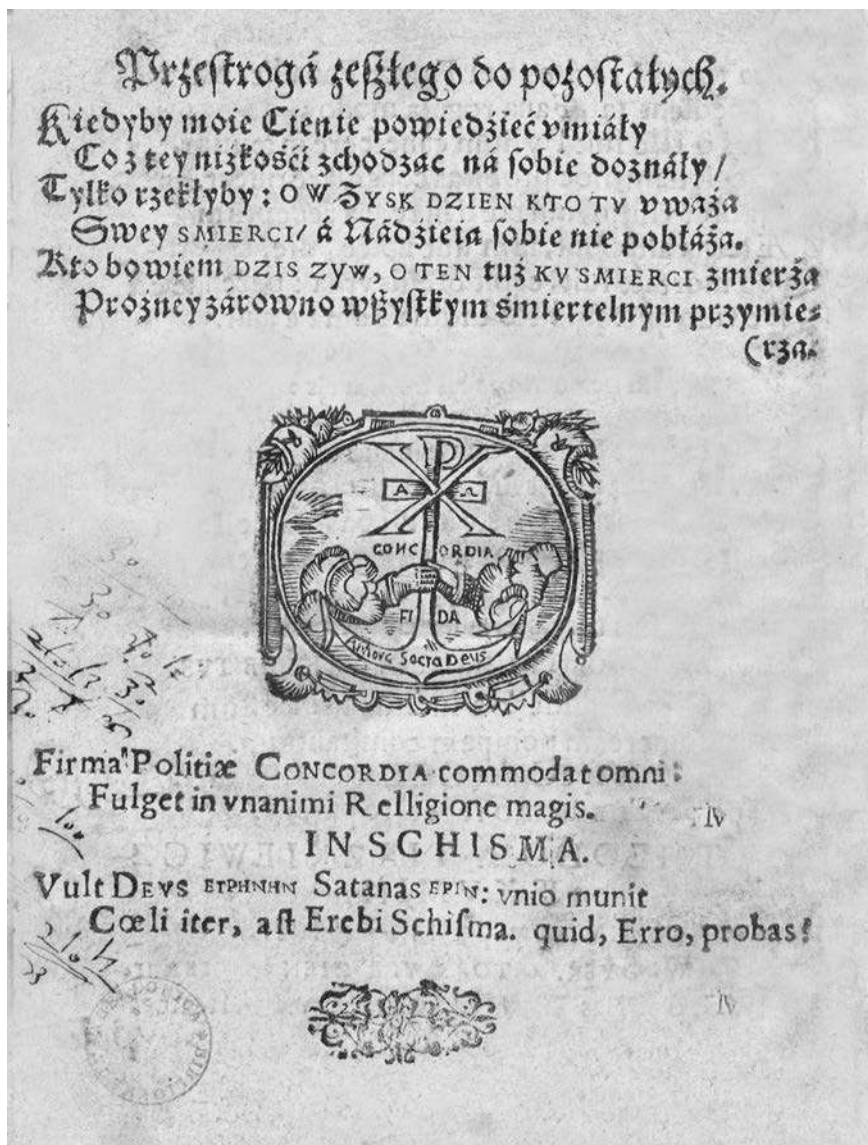 Przestrogá zeszłego do pozostałych.
Kiedyby moie Cienie powiedźieć vmiáły
Co z tey niżkośći zchodząc ná sobie doznáły /
Tylko rzekłyby : OW ZYSK DZIEN KTO TV vważa
Swey SMIERCI / á Nádźieią sobie nie pobłáża.
Kto bowiem DZIS ZYW, O TEN tuż KV SMIERCI zmierża
Prożney zárowno wszystkym śmiertelnym przymie⸗
(rza.
A Ω
CONCORDIA
FIDA
Sacra Deus
Firma Politiæ CONCORDIA commodat omni :
Fulget in vnanimi Relligione magis.
IN SCHISMA.
Vult DEVS ΕΙΡΗΝΗΝ Satanas ΕΡΙΝ: vnio munit
Cœli iter, aſt Erebi Schiſma. quid, Erro, probas?